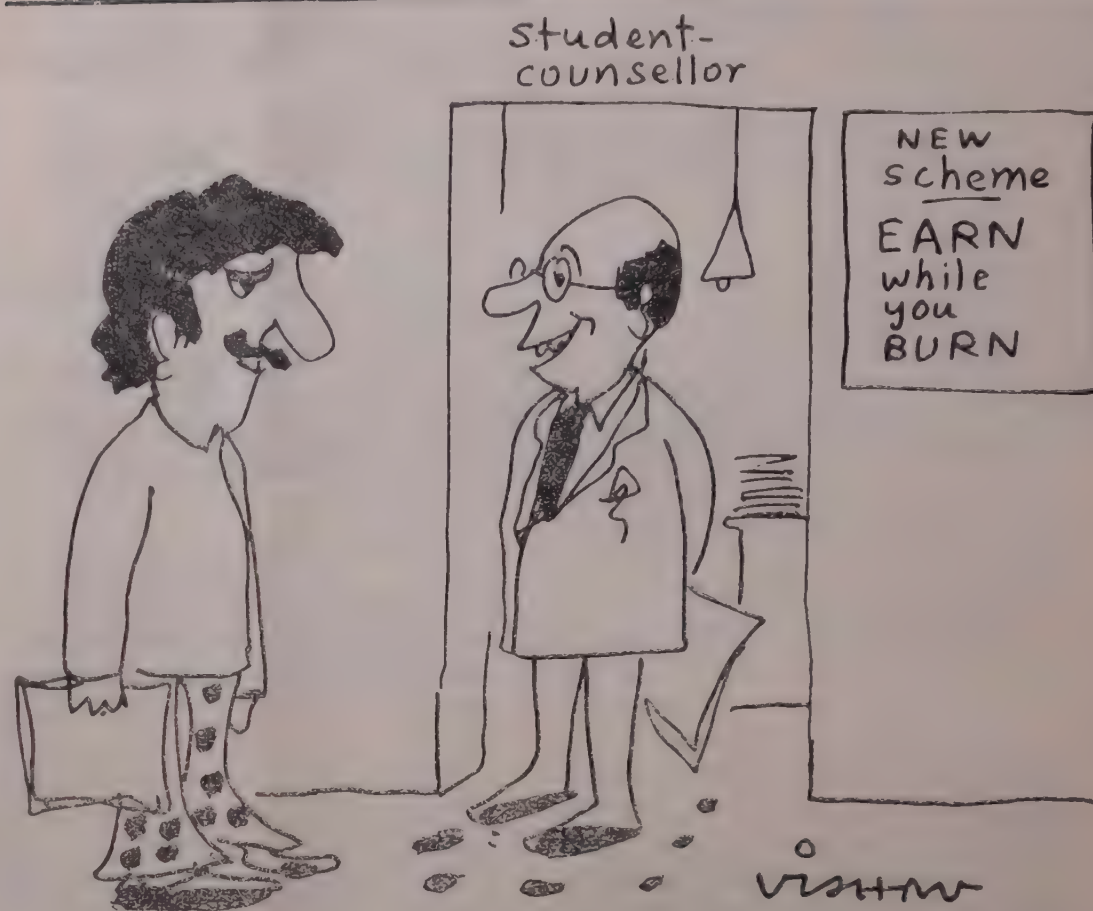 student-
counsellor
NEW
scheme
EARN
while
you
BURN